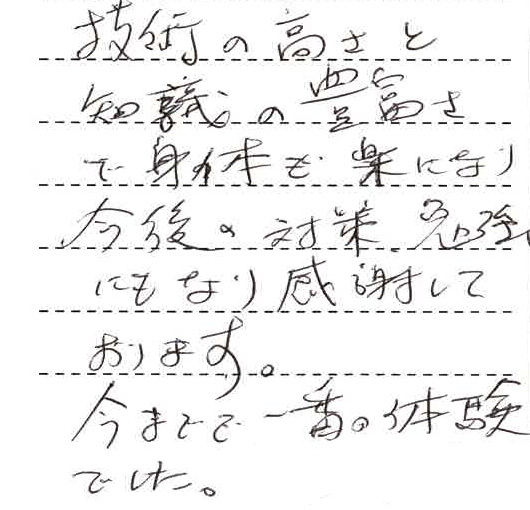 技術の高さと
知識の豊富さ
で身体も楽になり
今後の対策、勉強
にもなり感謝して
おります。
今までで一番の体験
でした。